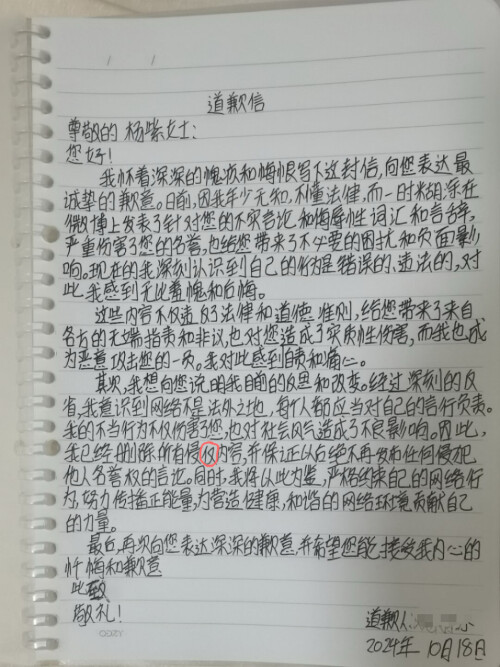 道歉信
尊敬的 杨紫女士：
您好！
我怀着深深的愧疚和悔恨写下这封信，向您表达最
诚挚的歉意。日前，因我年少无知，不懂法律，而一时糊涂在
微博上发表了针对您的不实言论和侮辱性词汇和言辞，
严重伤害了您的名誉，也给您带来了不必要的困扰和负面影
响。现在的我深刻认识到自己的行为是错误的、违法的，对
此，我感到无比羞愧和后悔。
这些内容不仅违反了法律和道德准则，给您带来了来自
各方的无端指责和非议，也对您造成了实质性伤害，而我也成
为恶意攻击您的一员。我对此感到自责和痛心。
其次，我想向您说明我目前的反思和改变。经过深刻的反
省，我意识到网络不是法外之地，每个人都应当对自己的言行负责。
我的不当行为不仅伤害了您，也对社会风气造成了不良影响。因此，
我已经删除所有侵仅内容，并保证以后绝不再发布任何侵犯
他人名誉权的言论。同时，我将以此为鉴，严格约束自己的网络行
为，努力传播正能量，为营造健康，和谐的网络环境贡献自己
的力量。
最后，再次向您表达深深的歉意，并希望您能接受我内心的
忏悔和歉意
此致
敬礼！
道歉人：
2024年 10月18日
COZY